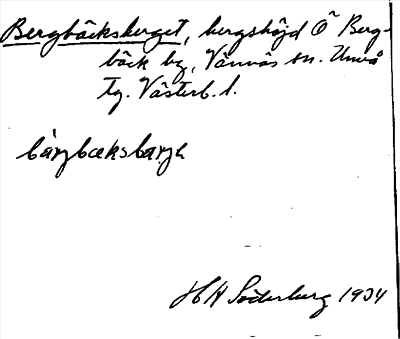 Bergbäcksberget, bergshöjd Ö Berg-
bäck by, Vännäs sn. Umeå
tg. Västerb. l.
bàrjbæksbarjɘ
H H Söderberg 1934